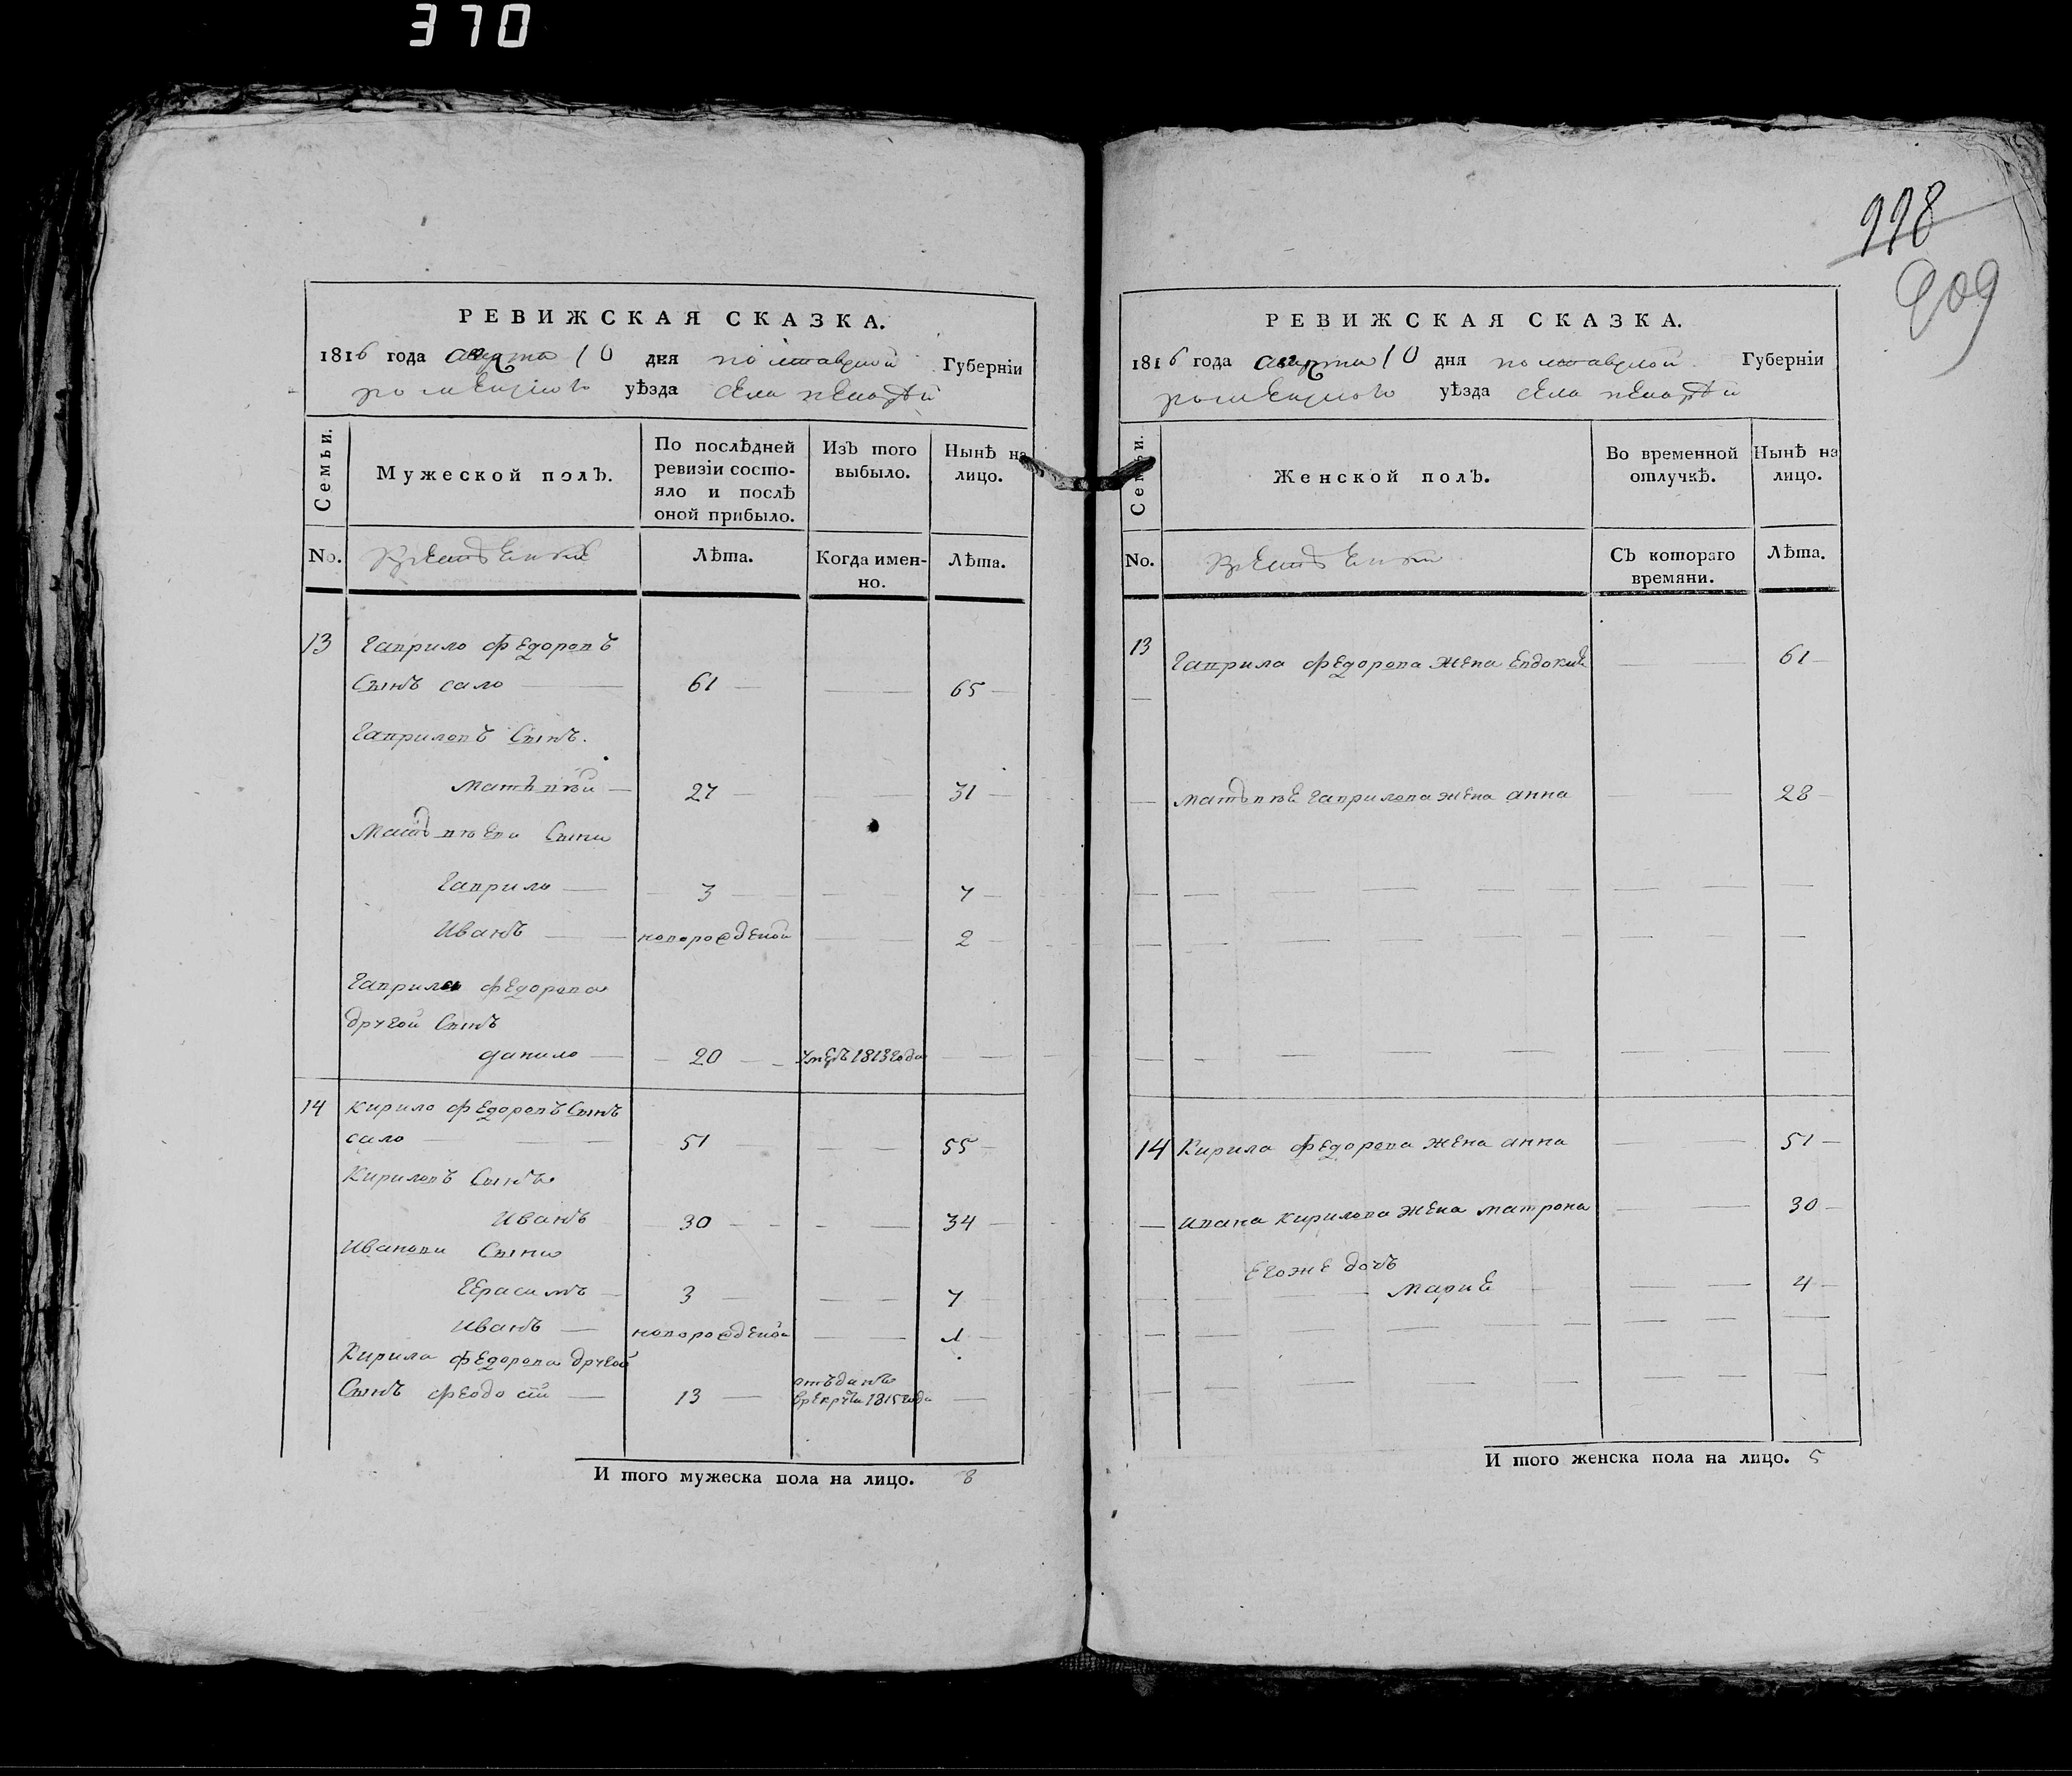 370
998
909
РЕВИЖСКАЯ СКАЗКА.
1816 года августа 10 дня полтавской Губерніи
роменского уѣзда села
Семьи.
Мужеской полъ.
По послѣдней ревизіи состо-
яло и послѣ
оной прибыло.
Изъ того
выбыло.
Нынѣ на
лицо.
No.
Лѣта.
Когда имен-
но.
Лѣта.
13 гаврило федоровъ
Сынъ сало 61 65
гавриловъ Сынъ.
матьвѣй 27 31
Матвѣеви Сыни
гаврило 3 7
Иванъ новорожденой 2
гаврила федорова
другой Сынъ
данило 20 умеръ 1813 года
14 кирило федоровъ Сынъ
сало 51 55
Кириловъ Сынъ
Иванъ 30 34
Иванови Сыни
герасимъ 3 7
иванъ новорожденой 1
Кирила федорова другой
Сынъ феодосій 13 отъданъ
врекруты 1815 года
И того мужеска пола на лицо. 8
РЕВИЖСКАЯ СКАЗКА.
1816 года августа 10 дня полтавской Губерніи
роменского уѣзда села
Семьи.
Женской полъ.
Во временной
отлучкѣ.
Нынѣ на
лицо.
No.
Съ котораго
времяни.
Лѣта.
13 гаврила федорова жена Евдокие 61
матьвѣе гаврилова жена анна 28
14 Кирила федорова жена анна 51
ивана кирилова жена матрона 30
Егоже дочь
Марие 4
И того женска пола на лицо. 5